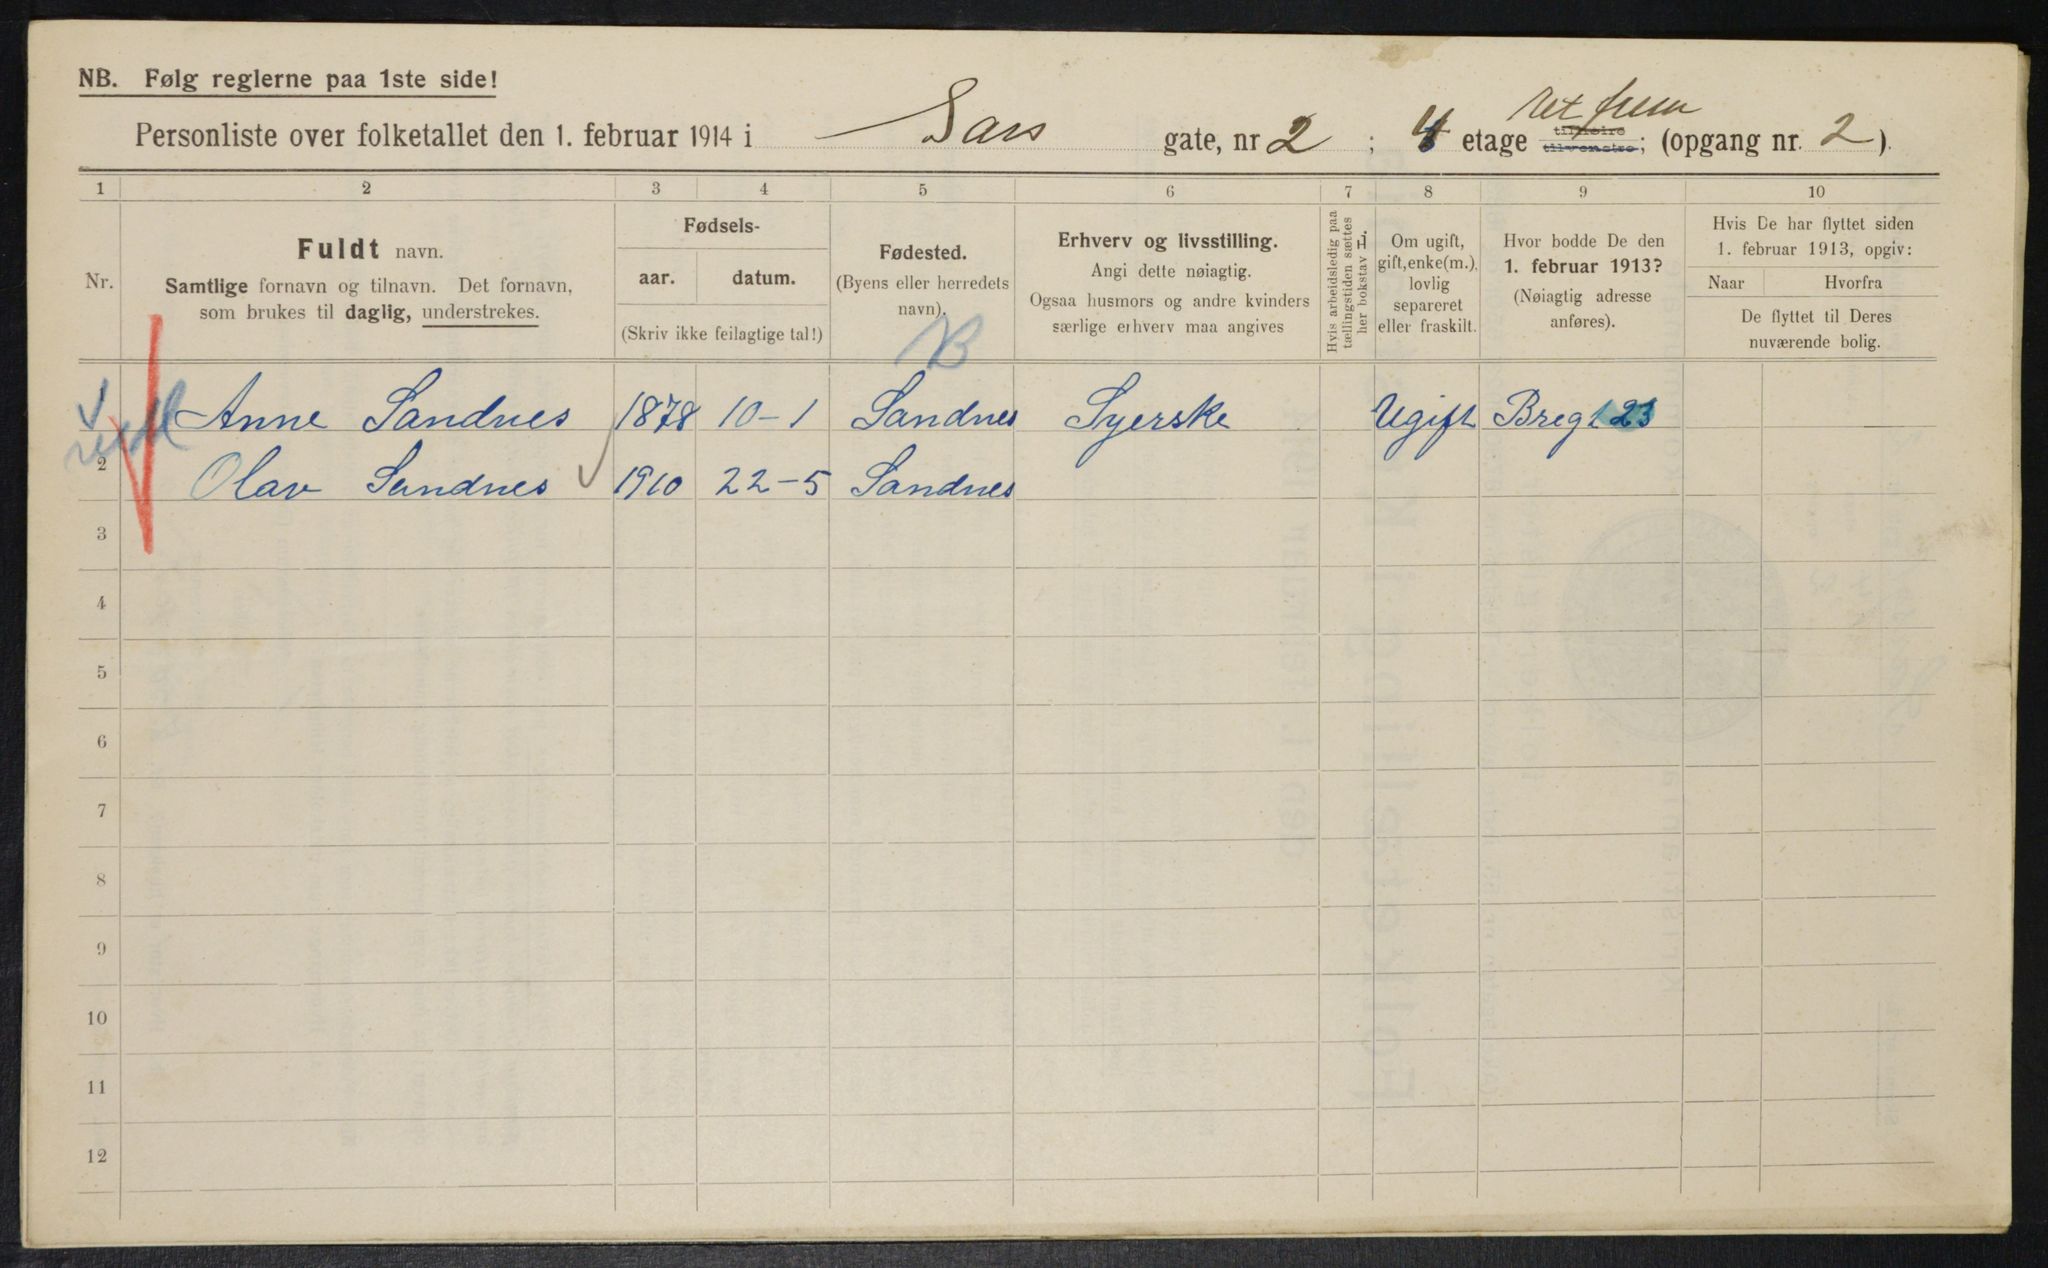 NB. Følg reglerne paa 1ste side!
Personliste over folketallet den 1. februar 1914 i Sars gate, nr 2 ; 4 etage ret frem tilhøire tilvenstre; (opgang nr. 2).
1 2 3 4 5 6 7 8 9 10
Nr.
Fuldt navn.
Samtlige fornavn og tilnavn. Det fornavn,
som brukes til daglig, understrekes.
Fødsels-
aar. datum.
(Skriv ikke feilagtige tal!)
Fødested.
(Byens eller herredets
navn).
B
Erhverv og livsstilling.
Angi dette nøiagtig.
Ogsaa husmors og andre kvinders
særlige erhverv maa angives
Hvis arbeidsledig paa
tællingstiden sættes
her bokstav L.
Om ugift,
gift, enke(m.),
lovlig
separeret
eller fraskilt.
Hvor bodde De den
1. februar 1913?
(Nøiagtig adresse
anføres).
Hvis De har flyttet siden
1. februar 1913, opgiv:
Naar Hvorfra
De flyttet til Deres
nuværende bolig.
1 Anne Sandnes 1878 10-1 Sandnes Syerske Ugift Bregt 23
2 Olav Sandnes 1910 22-5 Sandnes
3
4
5
6
7
8
9
10
11
12